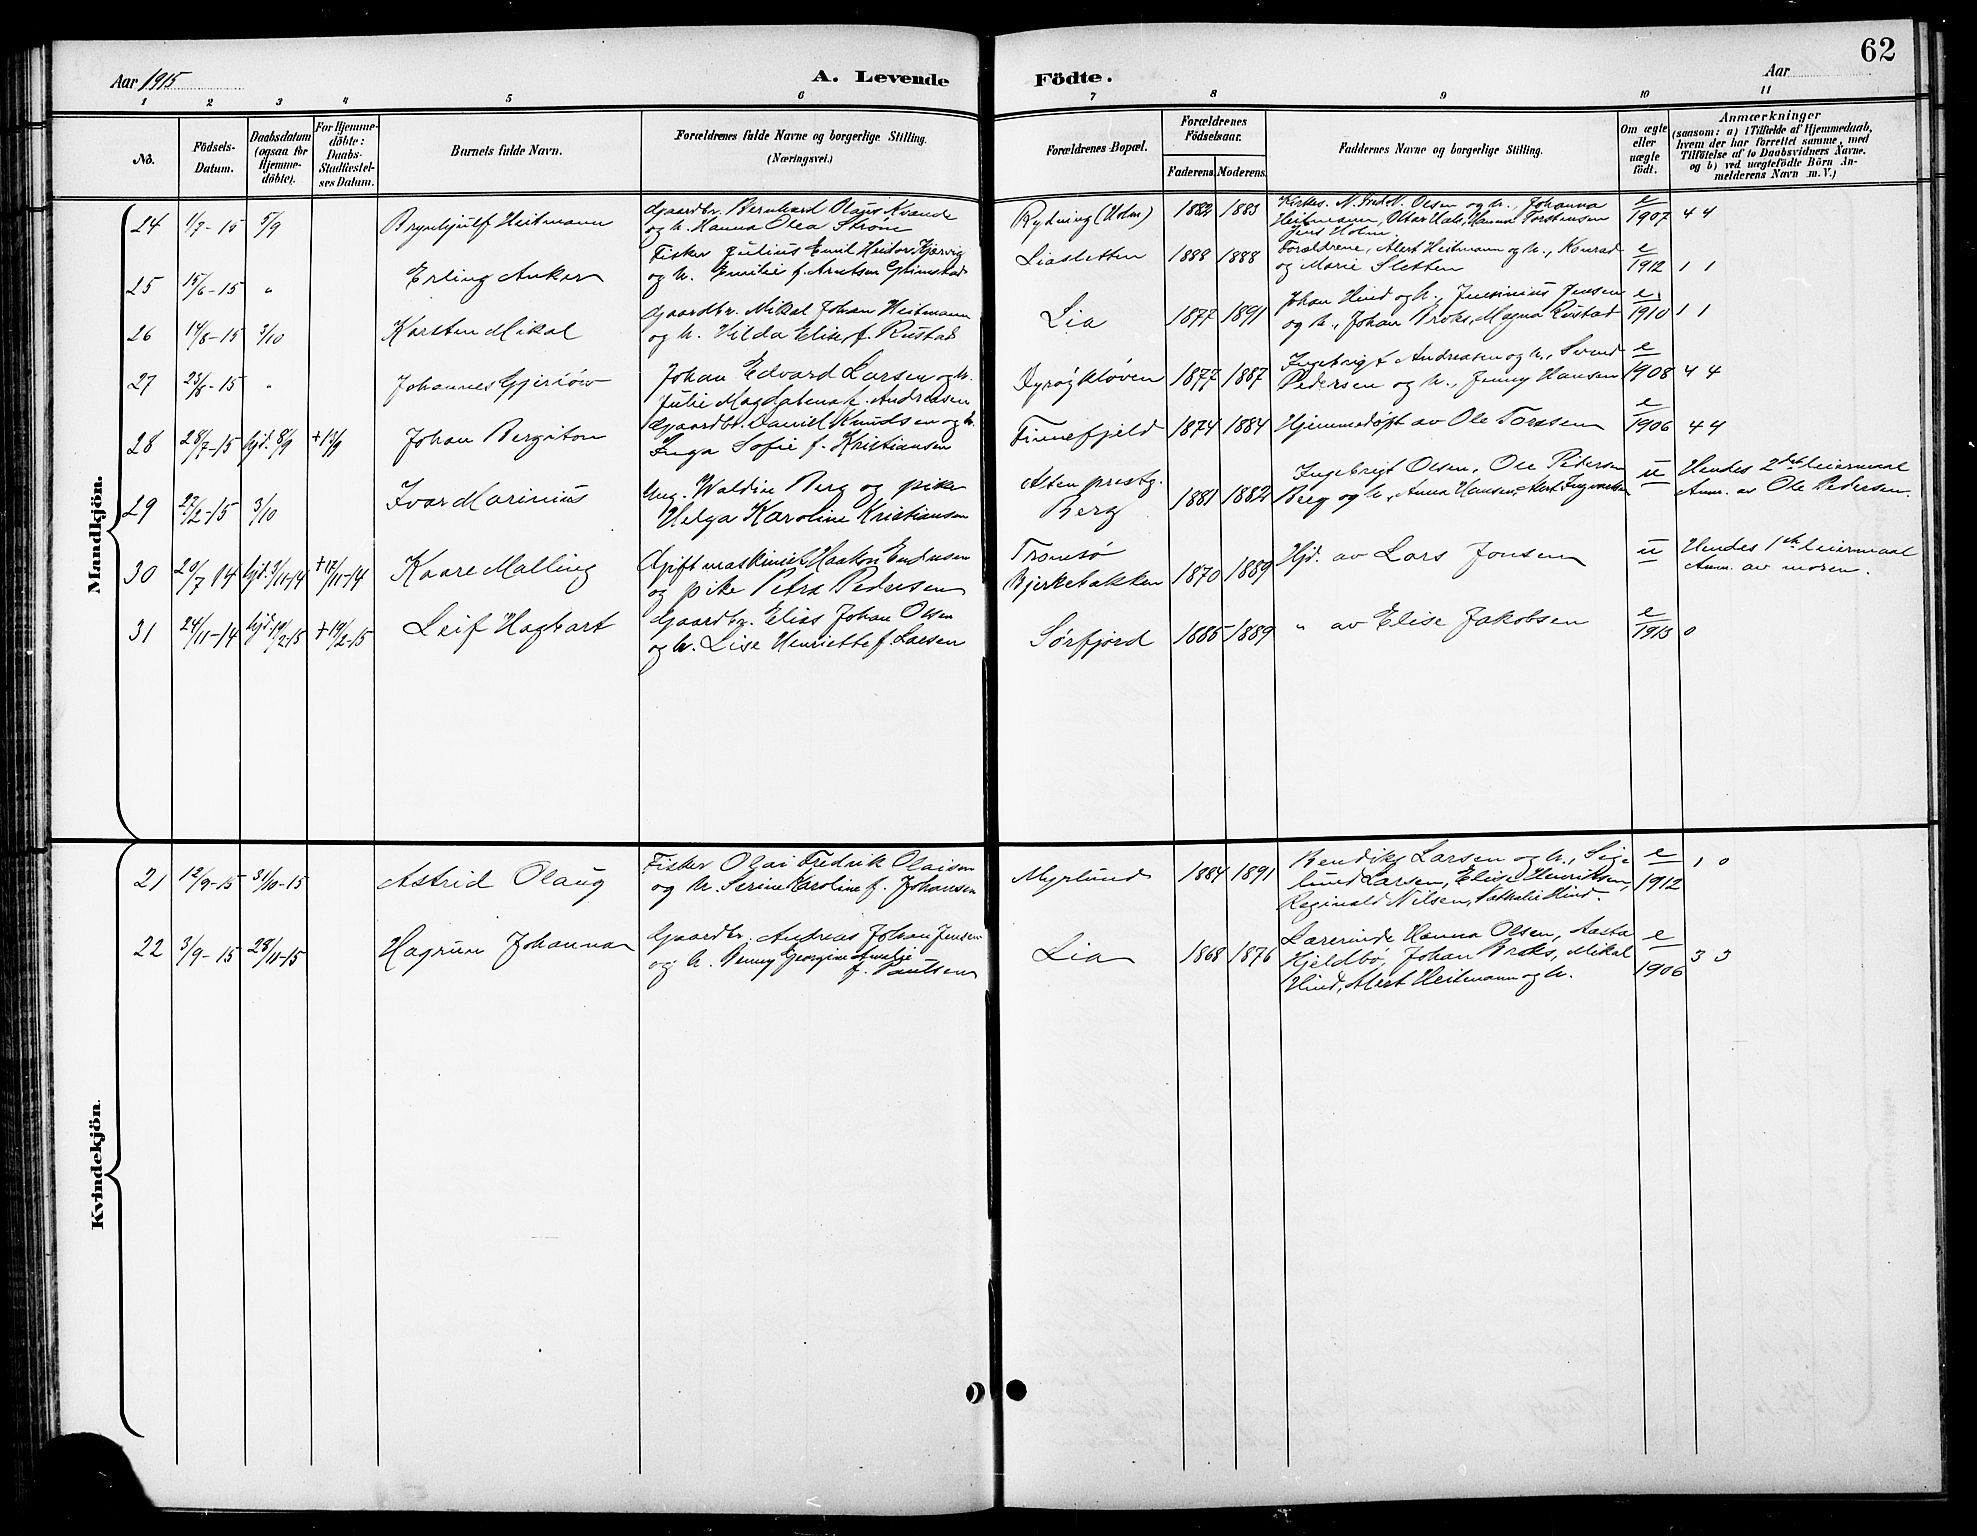 Aar 1915
A. Levende
Födte.
Aar
62
1 2 3 4 5 6 7 8 9 10 11
No.
Födsels-
Datum.
Daabsdatum
(ogsaa for
Hjemme-
döbte).
For Hjemme-
döbte:
Daabs-
Stadfæstel-
ses Datum.
Barnets fulde Navn.
Forældrenes fulde Navne og borgerlige Stilling.
(Næringsvei.)
Forældrenes Bopæl.
Forældrenes
Födselsaar.
Faderens.
Moderens.
Faddernes Navne og borgerlige Stilling.
Om ægte
eller
uægte
født.
Anmærkninger
(saasom: a) i Tilfælde af Hjemmedaab,
hvem der har forrettet samme, med
Tilföielse af to Daabsvidners Navne.
og b) ved uægtefödte Börn An-
melderens Navn m. V.)
Mandkjön.
24 1/7-15 5/9 Brynhjulf Heitmann
Gaardbr. Bernhard Olaus Kvande
og h. Hanna Olea Strøm
Rydning (Holm) 1882 1883
Olsen og h., Johanna
Heitmann, Ottar Hals, Hanna Torstensen
Jens Holm.
e/1907 4 4
25 15/6-15 " Erling Anker
Fisker Julius Emil Heitor Kjørvig
og h. Emilie f. Arntsen Glimstad
Liasletten 1888 1888
Forældrene, Alert Heitmann og h., Konrad
og Marie Sletten
e/1912 1 1
26 14/8-15 3/10 Karsten Mikal
Gaardbr. Mikal Johan Heitmann
og h. Hilda Elise f. Rustad
Lia 1877 1891
Johan Hind og h., Jensinius Jensen
og h., Johan Broks, Magna Rustad
e/1910 1 1
27 23/8-15 " Johannes Gjeriöw
Johan Edvard Larsen og h.
Julie Magdalena f. Andreasen
Dyrøykløven 1877 1887
Ingebrigt Andreasen og h., Svend
Pedersen og h., Jenny Hansen
e/1908 4 4
28 28/7-15 hjd. 8/9 +13/9 Johan Bergiton
Gaardbr. Daniel Knudsen og h.
Inga Sofie f. Kristiansen
Finnefjeld 1874 1884
Hjemmedøpt av Ole Torsen
e/1906 4 4
29 27/2-15 3/10 Ivar Marinius
Ung. Waldin Berg og pike
Helga Karoline Kristiansen
Alten prestg.
Berg 1881 1882
Ingebrigt Olsen, Ole Pedersen
Berg og h., Anna Hansen, Alert Ingvartsen
u Hendes 2det leiermaal
Anm. av Ole Pedersen.
30 20/7 14 hjd. 9/11-14 +17/11-14 Kaare Malling
Gift maskinist Haakon Endresen
og pike Petra Pedersen
Tromsø
Bjerkebakken 1870 1889
Hjd. av Lars Jonsen
u Hendes 1ste leiermaal
Anm. av moren.
31 24/11-14 hjd. 10/2-15 +19/2-15 Leif Hagbart
Gaardbr. Elias Johan Olsen
og h. Lise Henriette f. Larsen
Sørfjord 1885 1889
" av Elise Jakobsen
e/1913 0
Kvindekjön.
21 12/9-15 31/10-15 Astrid Olaug
Fisker Olai Fredrik Olaisen
og h. Serine Karoline f. Johansen
Myrlund 1884 1891
Bendiks Larsen og h., Sige
lund Larsen, Elise Henriksen,
Reginald Nilsen, Nathalie Hind.
e/1912 1 0
22 3/9-15 28/11-15 Hagrun Johanna
Gaardbr. Andreas Johan Jensen
og h. Penny Georgine Amalie
f. Paulsen
Lia 1868 1876
Lærerinde Hanna Olsen, Aasta
Hjeldbø, Johan Broks, Mikal
Hind, Alert Heitmann og h.
e/1906 3 3